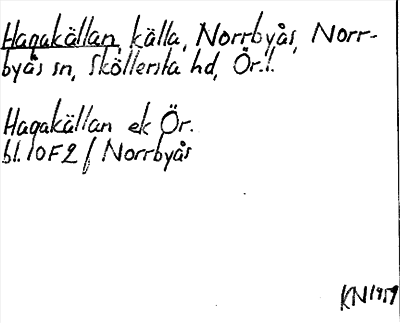 Hagakällan, källa, Norrbyås, Norr-
byås sn, Sköllersta hd, Ör.l.
Hagakällan ek Ör.
bl. 10F2 f Norrbyås
KN 1959